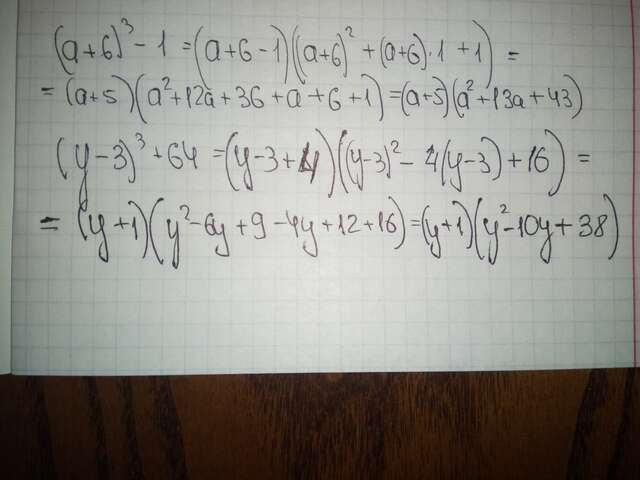 (a+6)³-1=(a+6-1)((a+6)²+(a+6)·1+1)=
=(a+5)(a²+12a+36+a+6+1)=(a+5)(a²+13a+43)
(y-3)³+64=(y-3+4)((y-3)²-4(y-3)+16)=
=(y+1)(y²-6y+9-4y+12+16)=(y+1)(y²-10y+38)